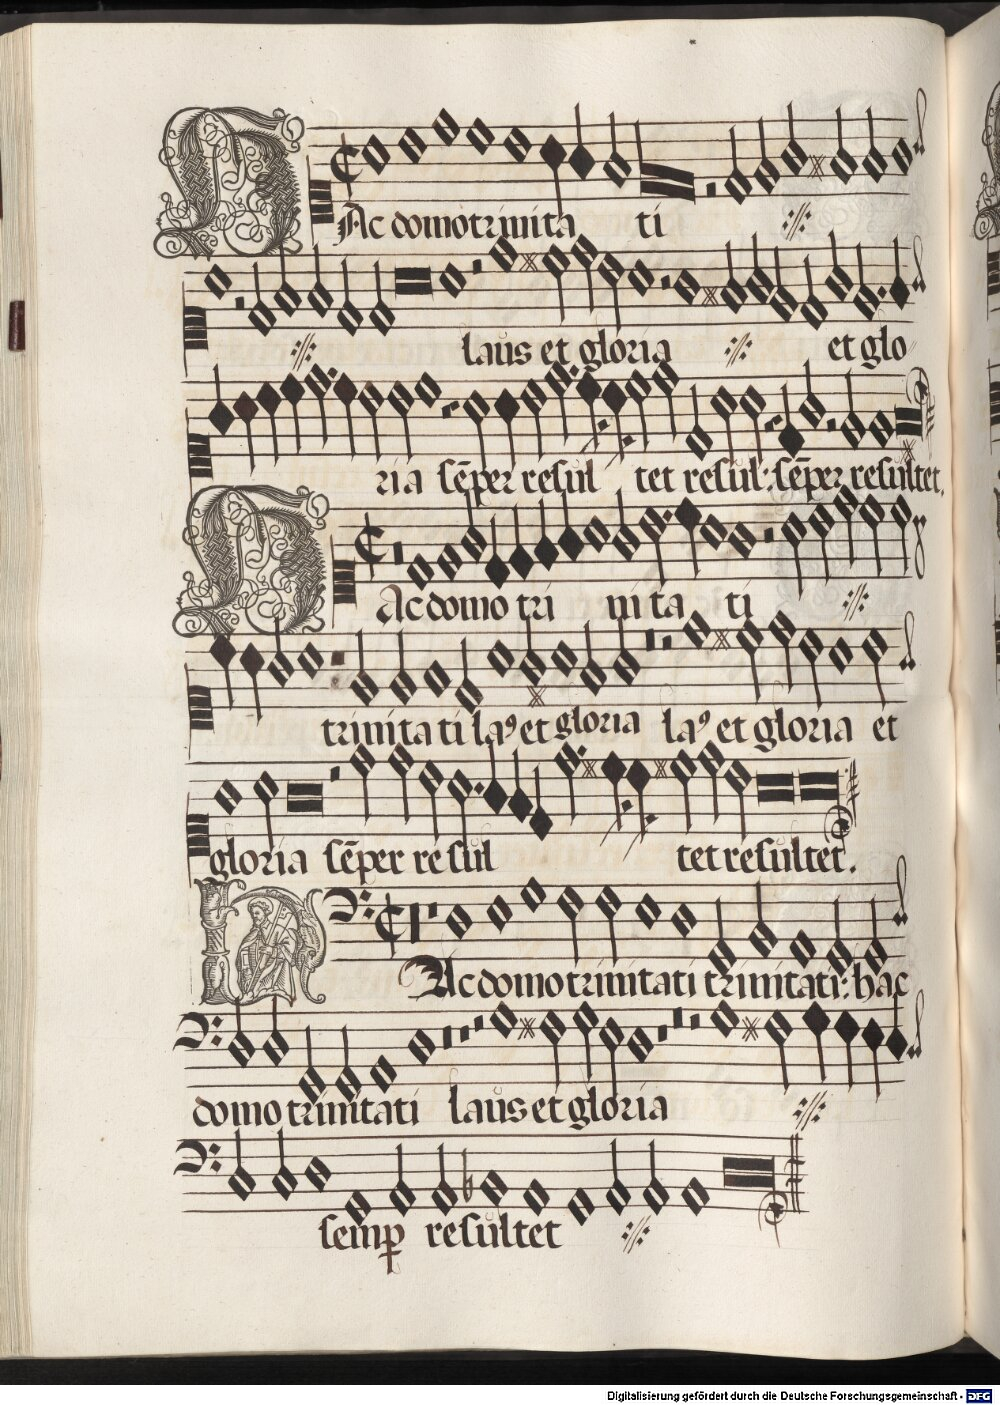 Ac domo trinita ti
laus et gloria et glo
ria sēper resul tet resul: sēper resultet.
Ac domo tri nita ti
trinitati laꝰ et gloria laꝰ et gloria et
gloria sēper resul tet resultet.
Ac domo trinitati trinitati: hac
domo trinitati laus et gloria
semꝑ resultet
Digitalisierung gefördert durch die Deutsche Forschungsgemeinschaft - DFG